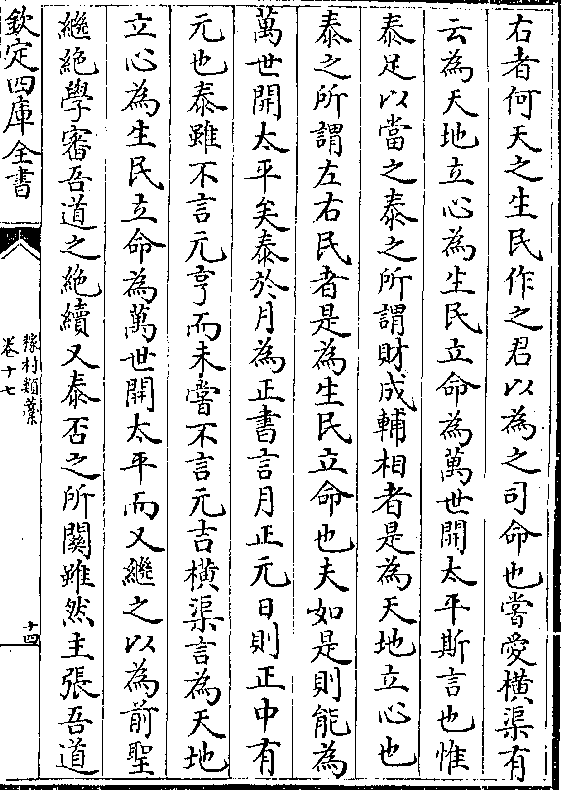 右者何天之生民作之君以為之司命也嘗愛橫渠有
云為天地立心為生民立命為萬世開太平斯言也惟
泰足以當之泰之所謂財成輔相者是為天地立心也
泰之所謂左右民者是為生民立命也夫如是則能為
萬世開太平矣泰於月為正書言月正元日則正中有
元也泰雖不言元亨而未嘗不言元吉橫渠言為天地
立心為生民立命為萬世開太平而又繼之以為前聖
繼絶學審吾道之絶續又泰否之所關雖然主張吾道
欽定四庫全書
稼村類藁
卷十七
十四